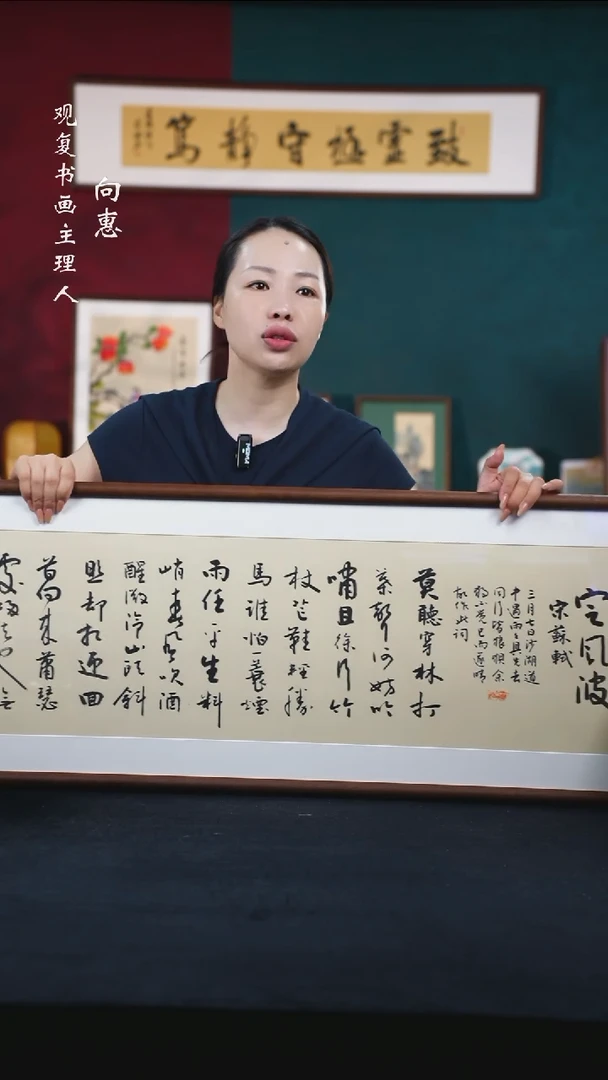 观复书画主理人
向惠
致虛極守靜篤
定風波
宋蘇軾
三月七日沙湖道
中遇雨雨具先去
同行皆狼狽余
獨不覺已而遂晴
故作此詞
莫聽穿林打
葉聲何妨吟
嘯且徐行竹
杖芒鞋輕勝
馬誰怕一蓑煙
雨任平生料
峭春風吹酒
醒微冷山頭斜
照却相迎回
首向來蕭瑟
處歸去也無